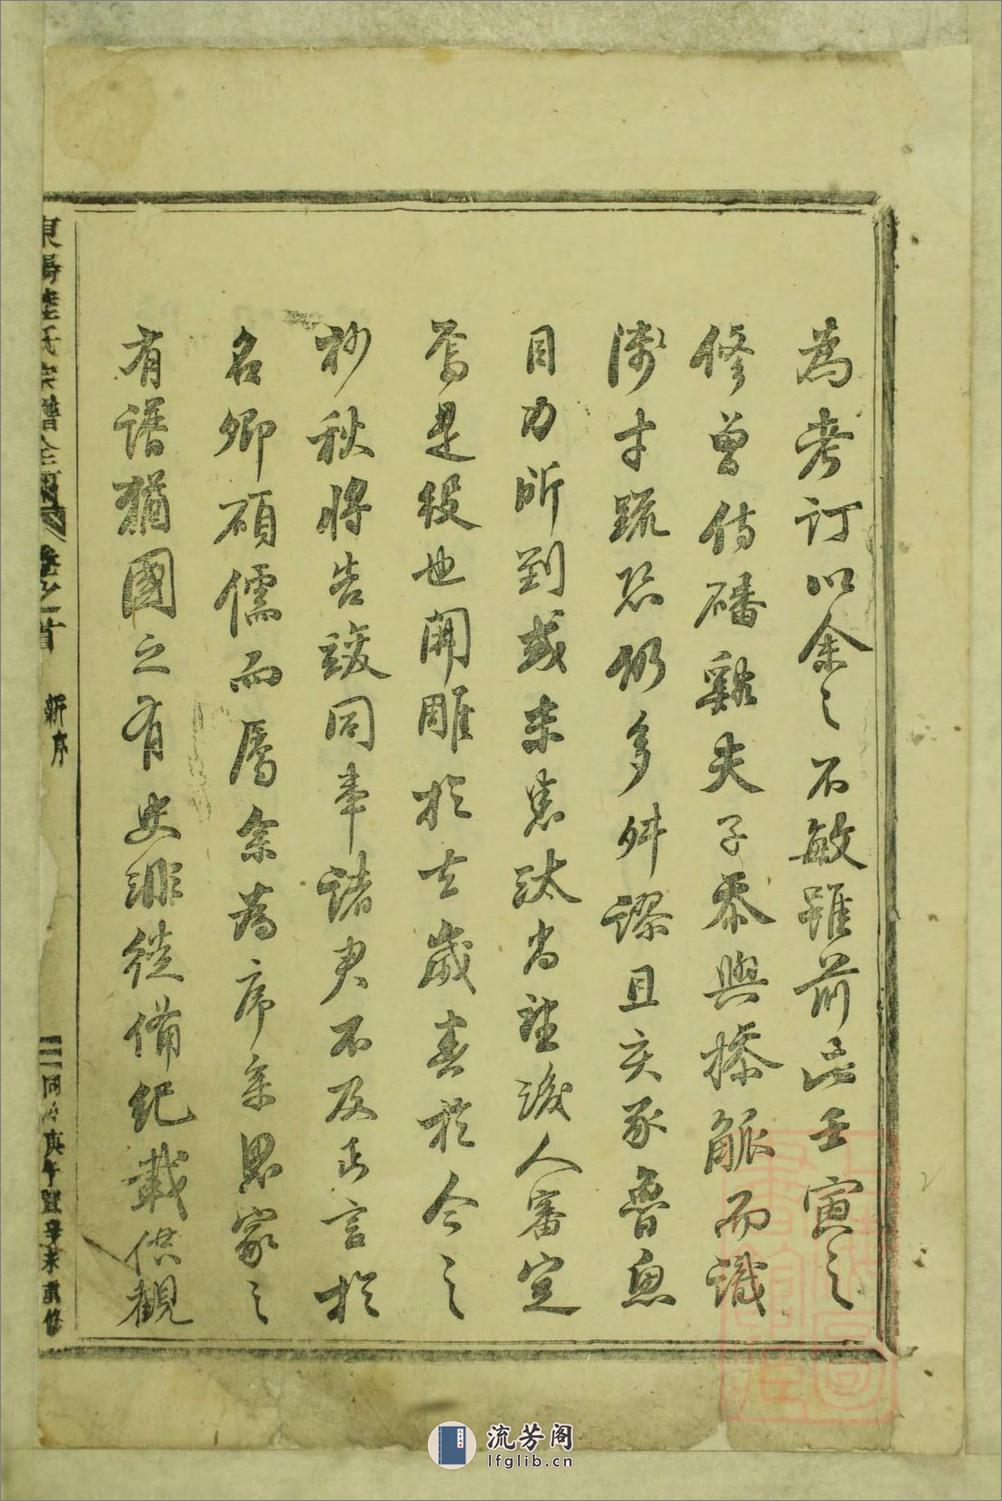 為考訂以余之不敏雖前此壬寅之
修曾侍磻谿夫子忝與操觚而識
淺才疏恐仍多舛謬且亥豕魯魚
目力所到或未悉汰尚望後人審定
焉是役也開雕於去歲春於今之
杪秋將告竣同事諸君不及丐言於
名卿碩儒而屬余為序余思家之
有譜猶國之有史非徒備紀載供觀
東陽陸氏宗譜全 卷之首
新序
同治庚午暨辛未重修
流芳阁
lfglib.cn